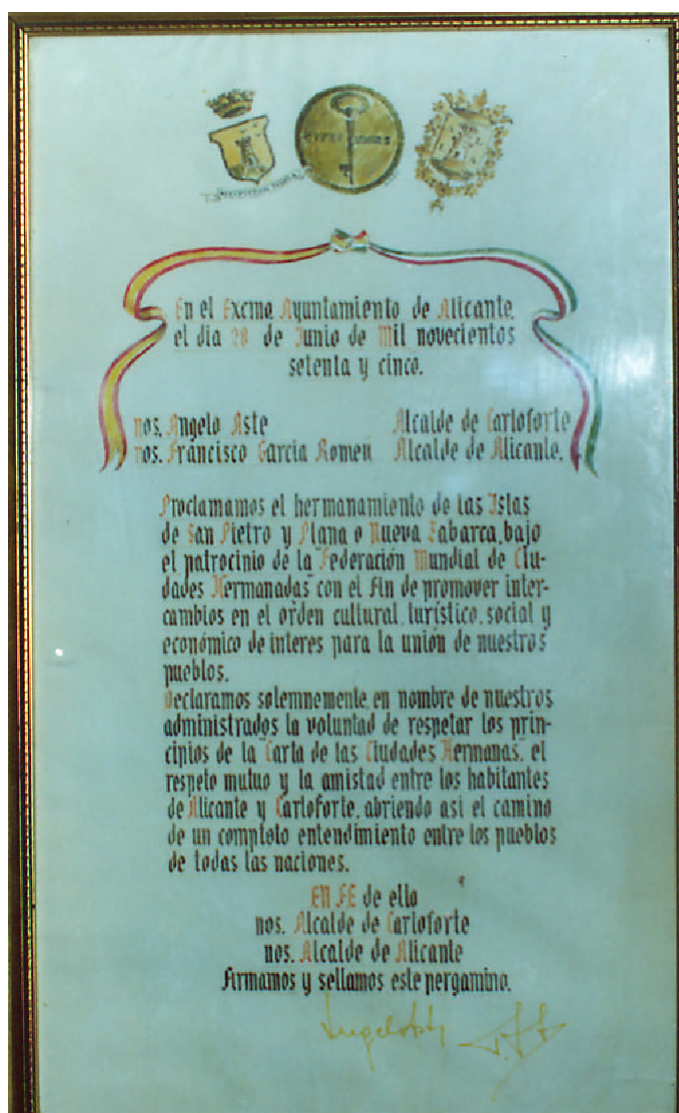 En el Excmo. Ayuntamiento de Alicante,
el dia 28 de Junio de Mil novecientos
setenta y cinco.
nos. Angelo Aste Alcalde de Carloforte
nos. Francisco García Romeu Alcalde de Alicante.
Proclamamos el hermanamiento de las Islas
de San Pietro y Plana o Nueva Tabarca, bajo
el patrocinio de la Federación Mundial de Ciu-
dades Hermanadas con el fin de promover inter-
cambios en el orden cultural, turístico, social y
económico de interes para la unión de nuestros
pueblos.
Declaramos solemnemente, en nombre de nuestros
administrados la voluntad de respetar los prin-
cipios de la "Carta de las Ciudades Hermanas", el
respeto mutuo y la amistad entre los habitantes
de Alicante y Carloforte, abriendo asi el camino
de un completo entendimiento entre los pueblos
de todas las naciones.
EN FE de ello
nos. Alcalde de Carloforte
nos. Alcalde de Alicante
Firmamos y sellamos este pergamino.